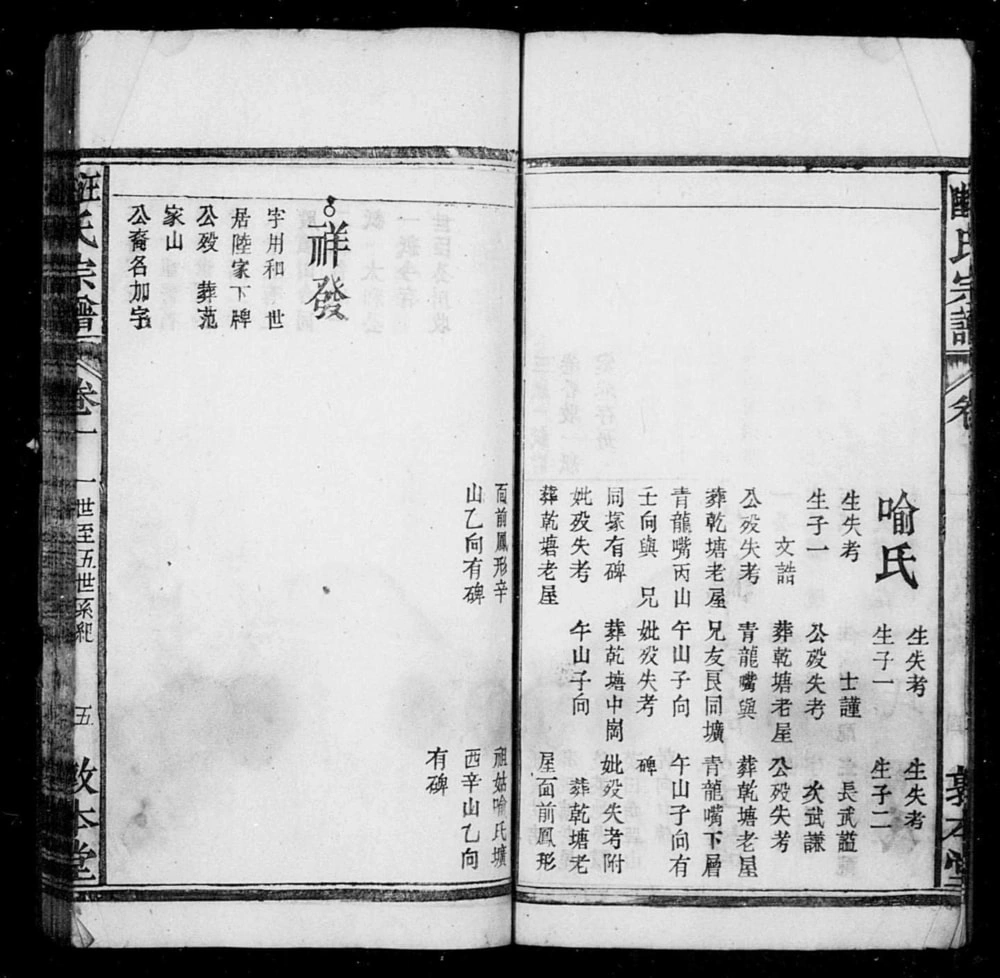 氏宗譜
喻氏
生失考
生子一
文誥
公歿失考
葬乾塘老屋
青龍嘴丙山
壬向與 兄
同塚有碑
妣歿失考
葬乾塘老屋
面前鳳形辛
山乙向有碑
生失考
生子一
士謹
公歿失考
葬乾塘老屋
青龍嘴與
兄友艮同壙
午山子向
妣歿失考
葬乾塘中崗
午山子向
生失考
生子二
長武謚
次武謙
公歿失考
葬乾塘老屋
青龍嘴下層
午山子向有
碑
妣歿失考附
葬乾塘老
屋面前鳳形
祖姑喻氏壙
酉辛山乙向
有碑
祥發
字用和世
居陸家下碑
公歿葬范
家山
公裔名加字
氏宗譜
卷一
一世至五世系紀
五
敦本堂